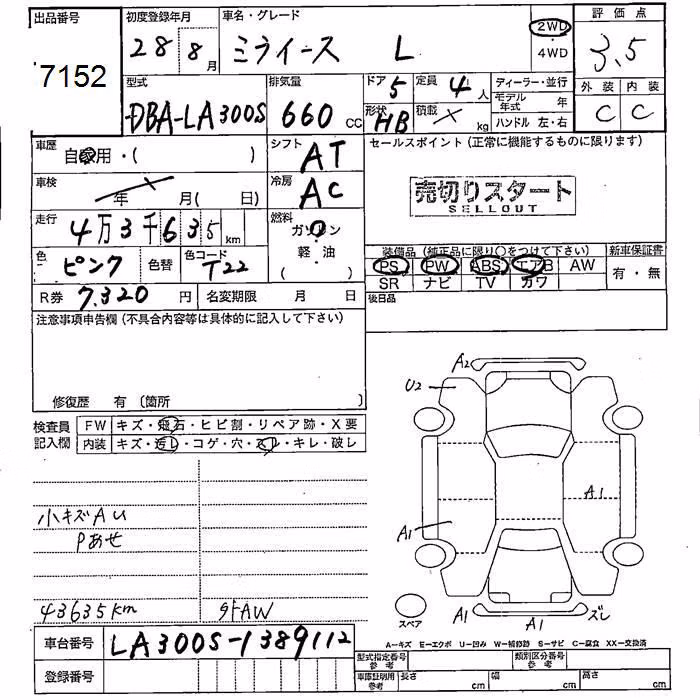 出品番号 初度登録年月 車名・グレード 2WD 評価点
7152 28 8月 ミライース L ・4WD 3.5
型式 排気量 ドア 5 定員 4人 ディーラー・並行 外装 内装
DBA-LA300S 660cc 形状 HB 積載 ✕ kg モデル年式 年 C C
ハンドル 左・右
車歴 自家用・( ) シフト AT セールスポイント (正常に機能するものに限ります)
車検 年 月( 日) 冷房 AC 売切りスタート
SELLOUT
走行 4万3千635km 燃料 ガソリン
軽・油
( )
色 ピンク 色替 色コード T22 装備品 (純正品に限り○をつけて下さい) 新車保証書
PS PW ABS エアB AW 有・無
SR ナビ TV カワ
R券 7.320円 名変期限 月 日 後日品
注意事項申告欄 (不具合内容等は具体的に記入して下さい)
修復歴 有 (箇所 )
検査員記入欄 FW キズ・飛石・ヒビ割・リペア跡・X要
内装 キズ・汚レ・コゲ・穴・スレ・キレ・破レ
小キズAU
Pあせ
43635km 外AW
A2
U2
A1
A1
A1 A1 ズレ
スペア
A-キズ E-エクボ U-凹み W-補修跡 S-サビ C-腐食 XX-交換済
車台番号 LA300S-1389112
登録番号
型式指定番号 参考 類別区分番号 参考
車庫証明用 参考 長さ cm 幅 cm 高さ cm